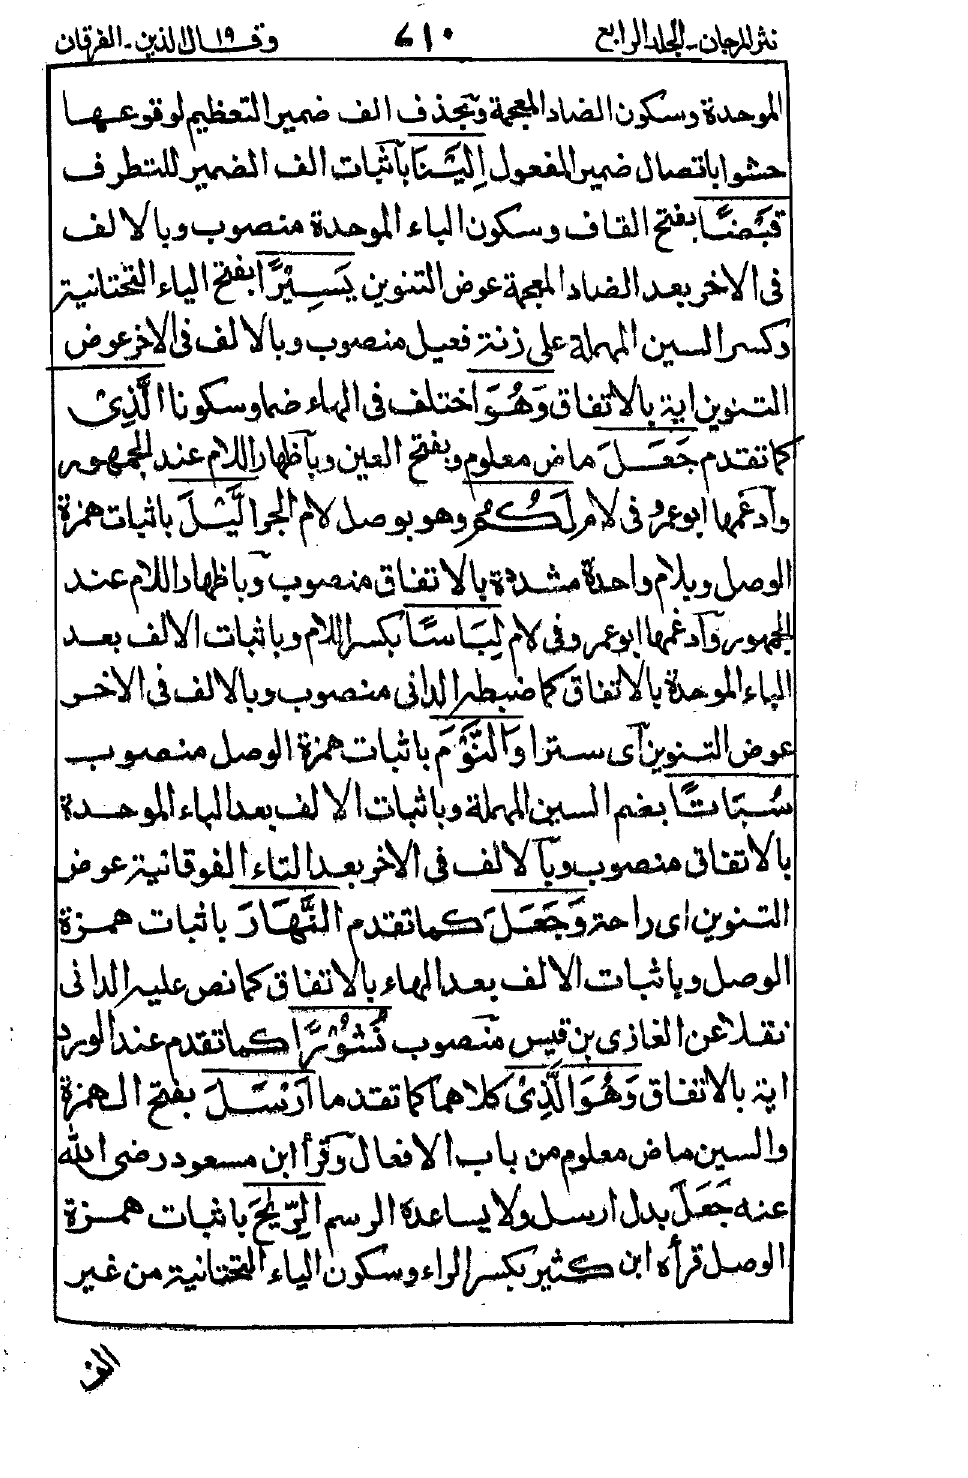 نثر المرجان - الجلد الرابع ٤١٠ وقال الذين ١٩ - الفرقان
الموحدة وسكون الضاد المعجمة وبحذف الف ضمير التعظيم لوقوعها
حشوا باتصال ضمير المفعول اِلَيْنَا بآثبات الف الضمير للتطرف
قَبْضًا بفتح القاف وسكون الباء الموحدة منصوب وبالالف
فى الاخر بعد الضاد المعجمة عوض التنوين يَسِيْرًا بفتح الياء التحتانية
وكسر السين المهملة على زنة فعيل منصوب وبالالف فى الاخر عوض
التنوين اية بالاتفاق وَهُوَ اختلف فى الهاء ضما وسكونا الَّذِىْ
كما تقدم جَعَلَ ماض معلوم وبفتح العين وبآظهار اللام عند الجمهور
وآدغمها ابو عمرو فى لام لَكُمُ وهو بوصل لام الجر الَّيْلَ باثبات همزة
الوصل وبلام واحدة مشددة بالاتفاق منصوب وبآظهار اللام عند
الجمهور وآدغمها ابو عمرو فى لام لِبَاسًا بكسر اللام وباثبات الالف بعد
الباء الموحدة بالاتفاق كما ضبطه الدانى منصوب وبالالف فى الاخر
عوض التنوين آى سترا وَالنَّوْمَ باثبات همزة الوصل منصوب
سُبَاتًا بضم السين المهملة وباثبات الالف بعد الباء الموحدة
بالاتفاق منصوب وبآلالف فى الاخر بعد التاء الفوقانية عوض
التنوين اى راحة وَجَعَلَ كما تقدم النَّهَارَ باثبات همزة
الوصل وباثبات الالف بعد الهاء بالاتفاق كما نص عليه الدانى
نقلا عن الغازى بن قيس منصوب نُشُوْرًا كما تقدم عند الورد
اية بالاتفاق وَهُوَ الَّذِىْ كلاهما كما تقدم ما اَرْسَلَ بفتح الهمزة
والسين ماض معلوم من باب الافعال وقرأ ابن مسعود رضى الله
عنه جَعَلَ بدل ارسل ولا يساعده الرسم الرِّيٰحَ باثبات همزة
الوصل قرأه ابن كثير بكسر الراء وسكون الياء التحتانية من غير
الف